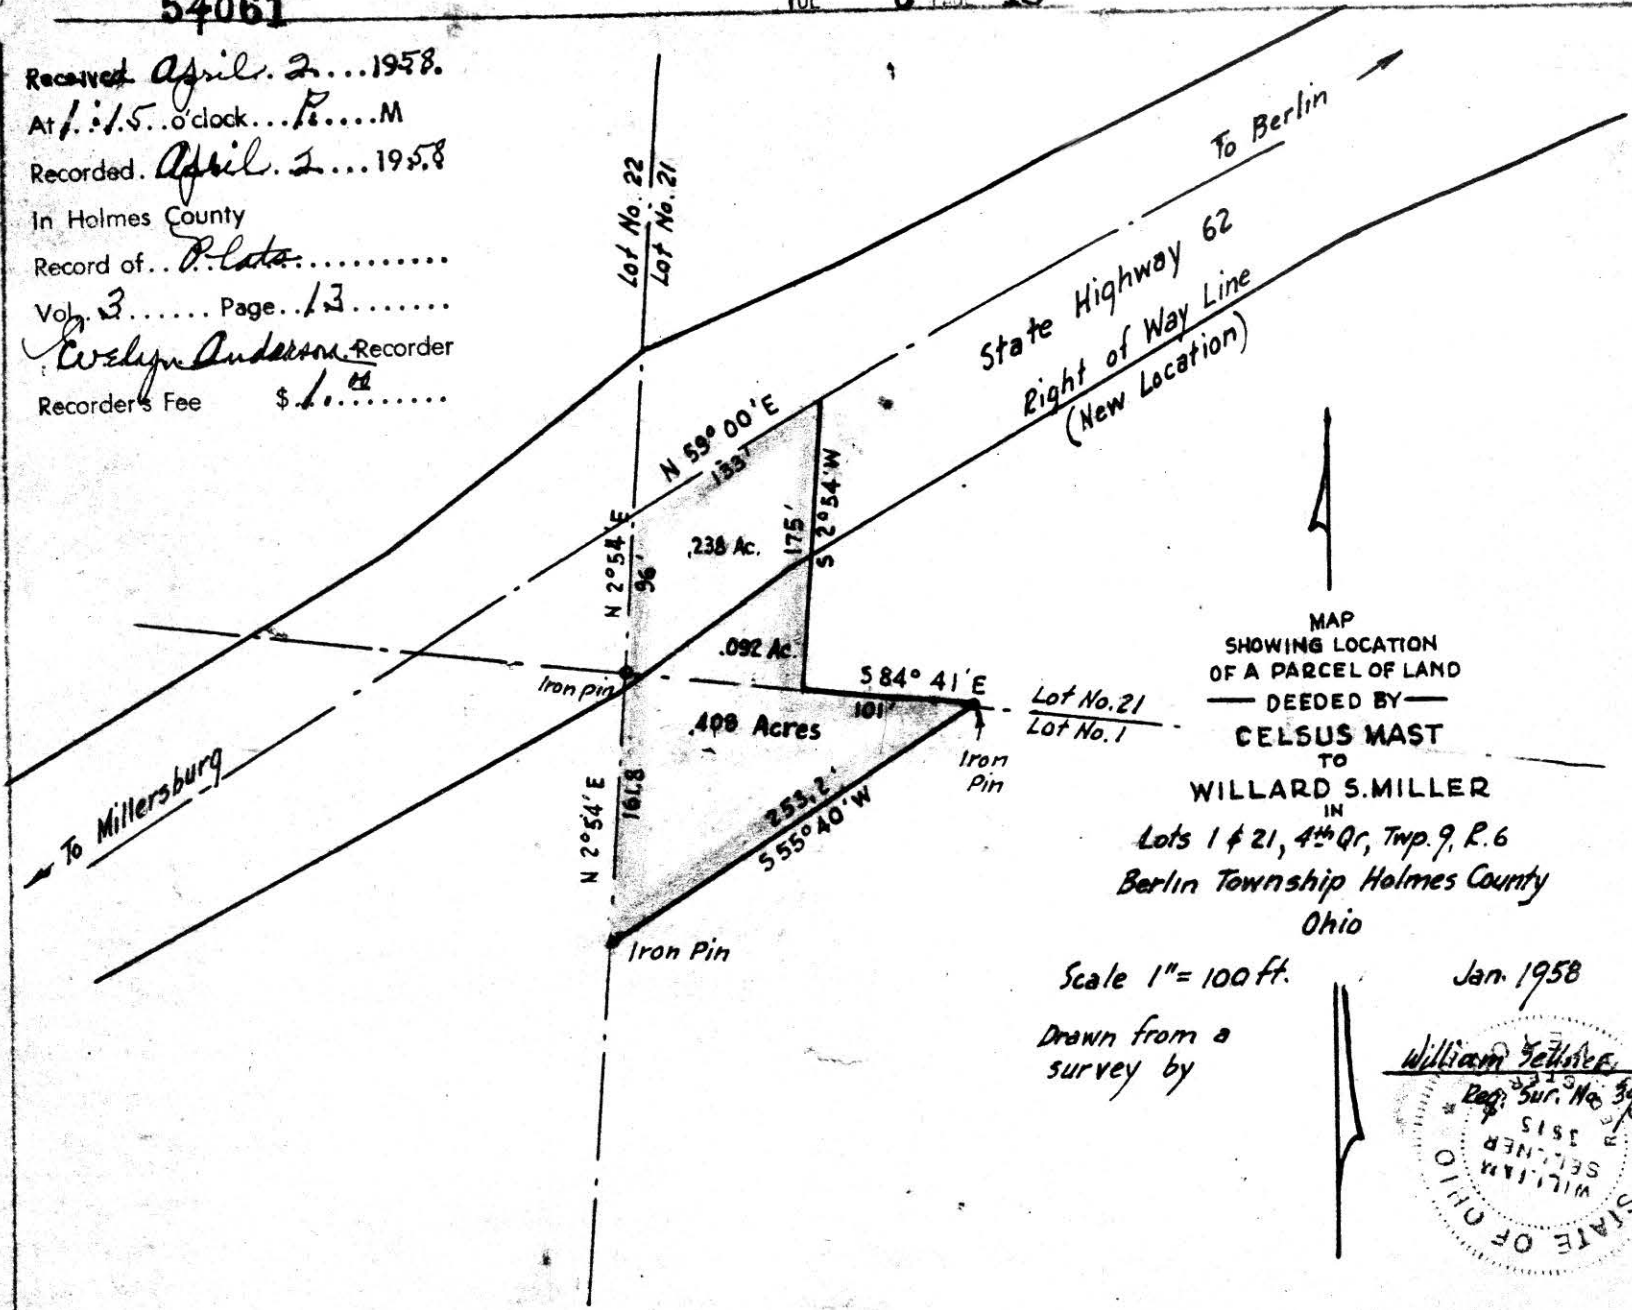 54061
Received April 2 1958.
At 1:15 o'clock P. M
Recorded April 2 1958
In Holmes County
Record of Plats
Vol. 3 Page 13
Evelyn Anderson Recorder
Recorder's Fee $ 1.00
Lot No. 22
Lot No. 21
To Berlin
State Highway 62
Right of Way Line
(New Location)
N 59° 00' E
133'
N 2° 54' E
96'
.238 Ac.
175'
S 2° 54' W
.092 Ac.
Iron pin
S 84° 41' E
101'
Lot No. 21
Lot No. 1
.408 Acres
Iron
Pin
N 2° 54' E
161.8
253.2'
S 55° 40' W
Iron Pin
To Millersburg
MAP
SHOWING LOCATION
OF A PARCEL OF LAND
DEEDED BY
CELSUS MAST
TO
WILLARD S. MILLER
IN
Lots 1 & 21, 4th Qr, Twp. 9, R. 6
Berlin Township Holmes County
Ohio
Scale 1" = 100 ft.
Jan. 1958
Drawn from a
survey by
William Sellner
Reg. Sur. No.
STATE OF OHIO
WILLIAM
SELLNER